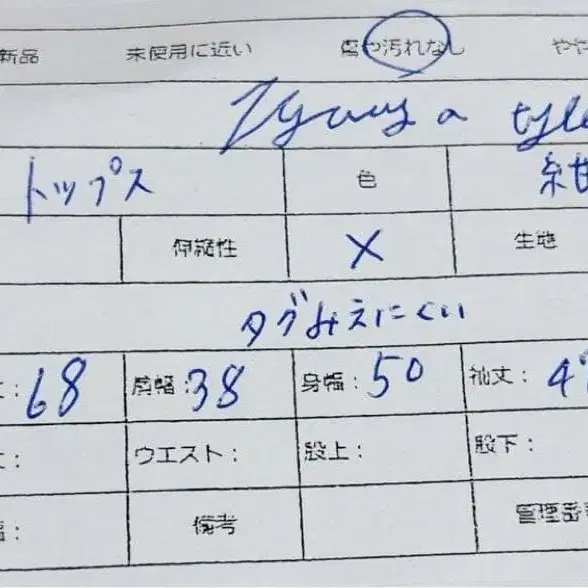 新品 未使用に近い 傷や汚れなし やや
a
トップス 色 紺
伸縮性 × 生地
タグみえにくい
丈:68 肩幅:38 身幅:50 袖丈:4
丈: ウエスト: 股上: 股下:
幅: 備考 管理番号